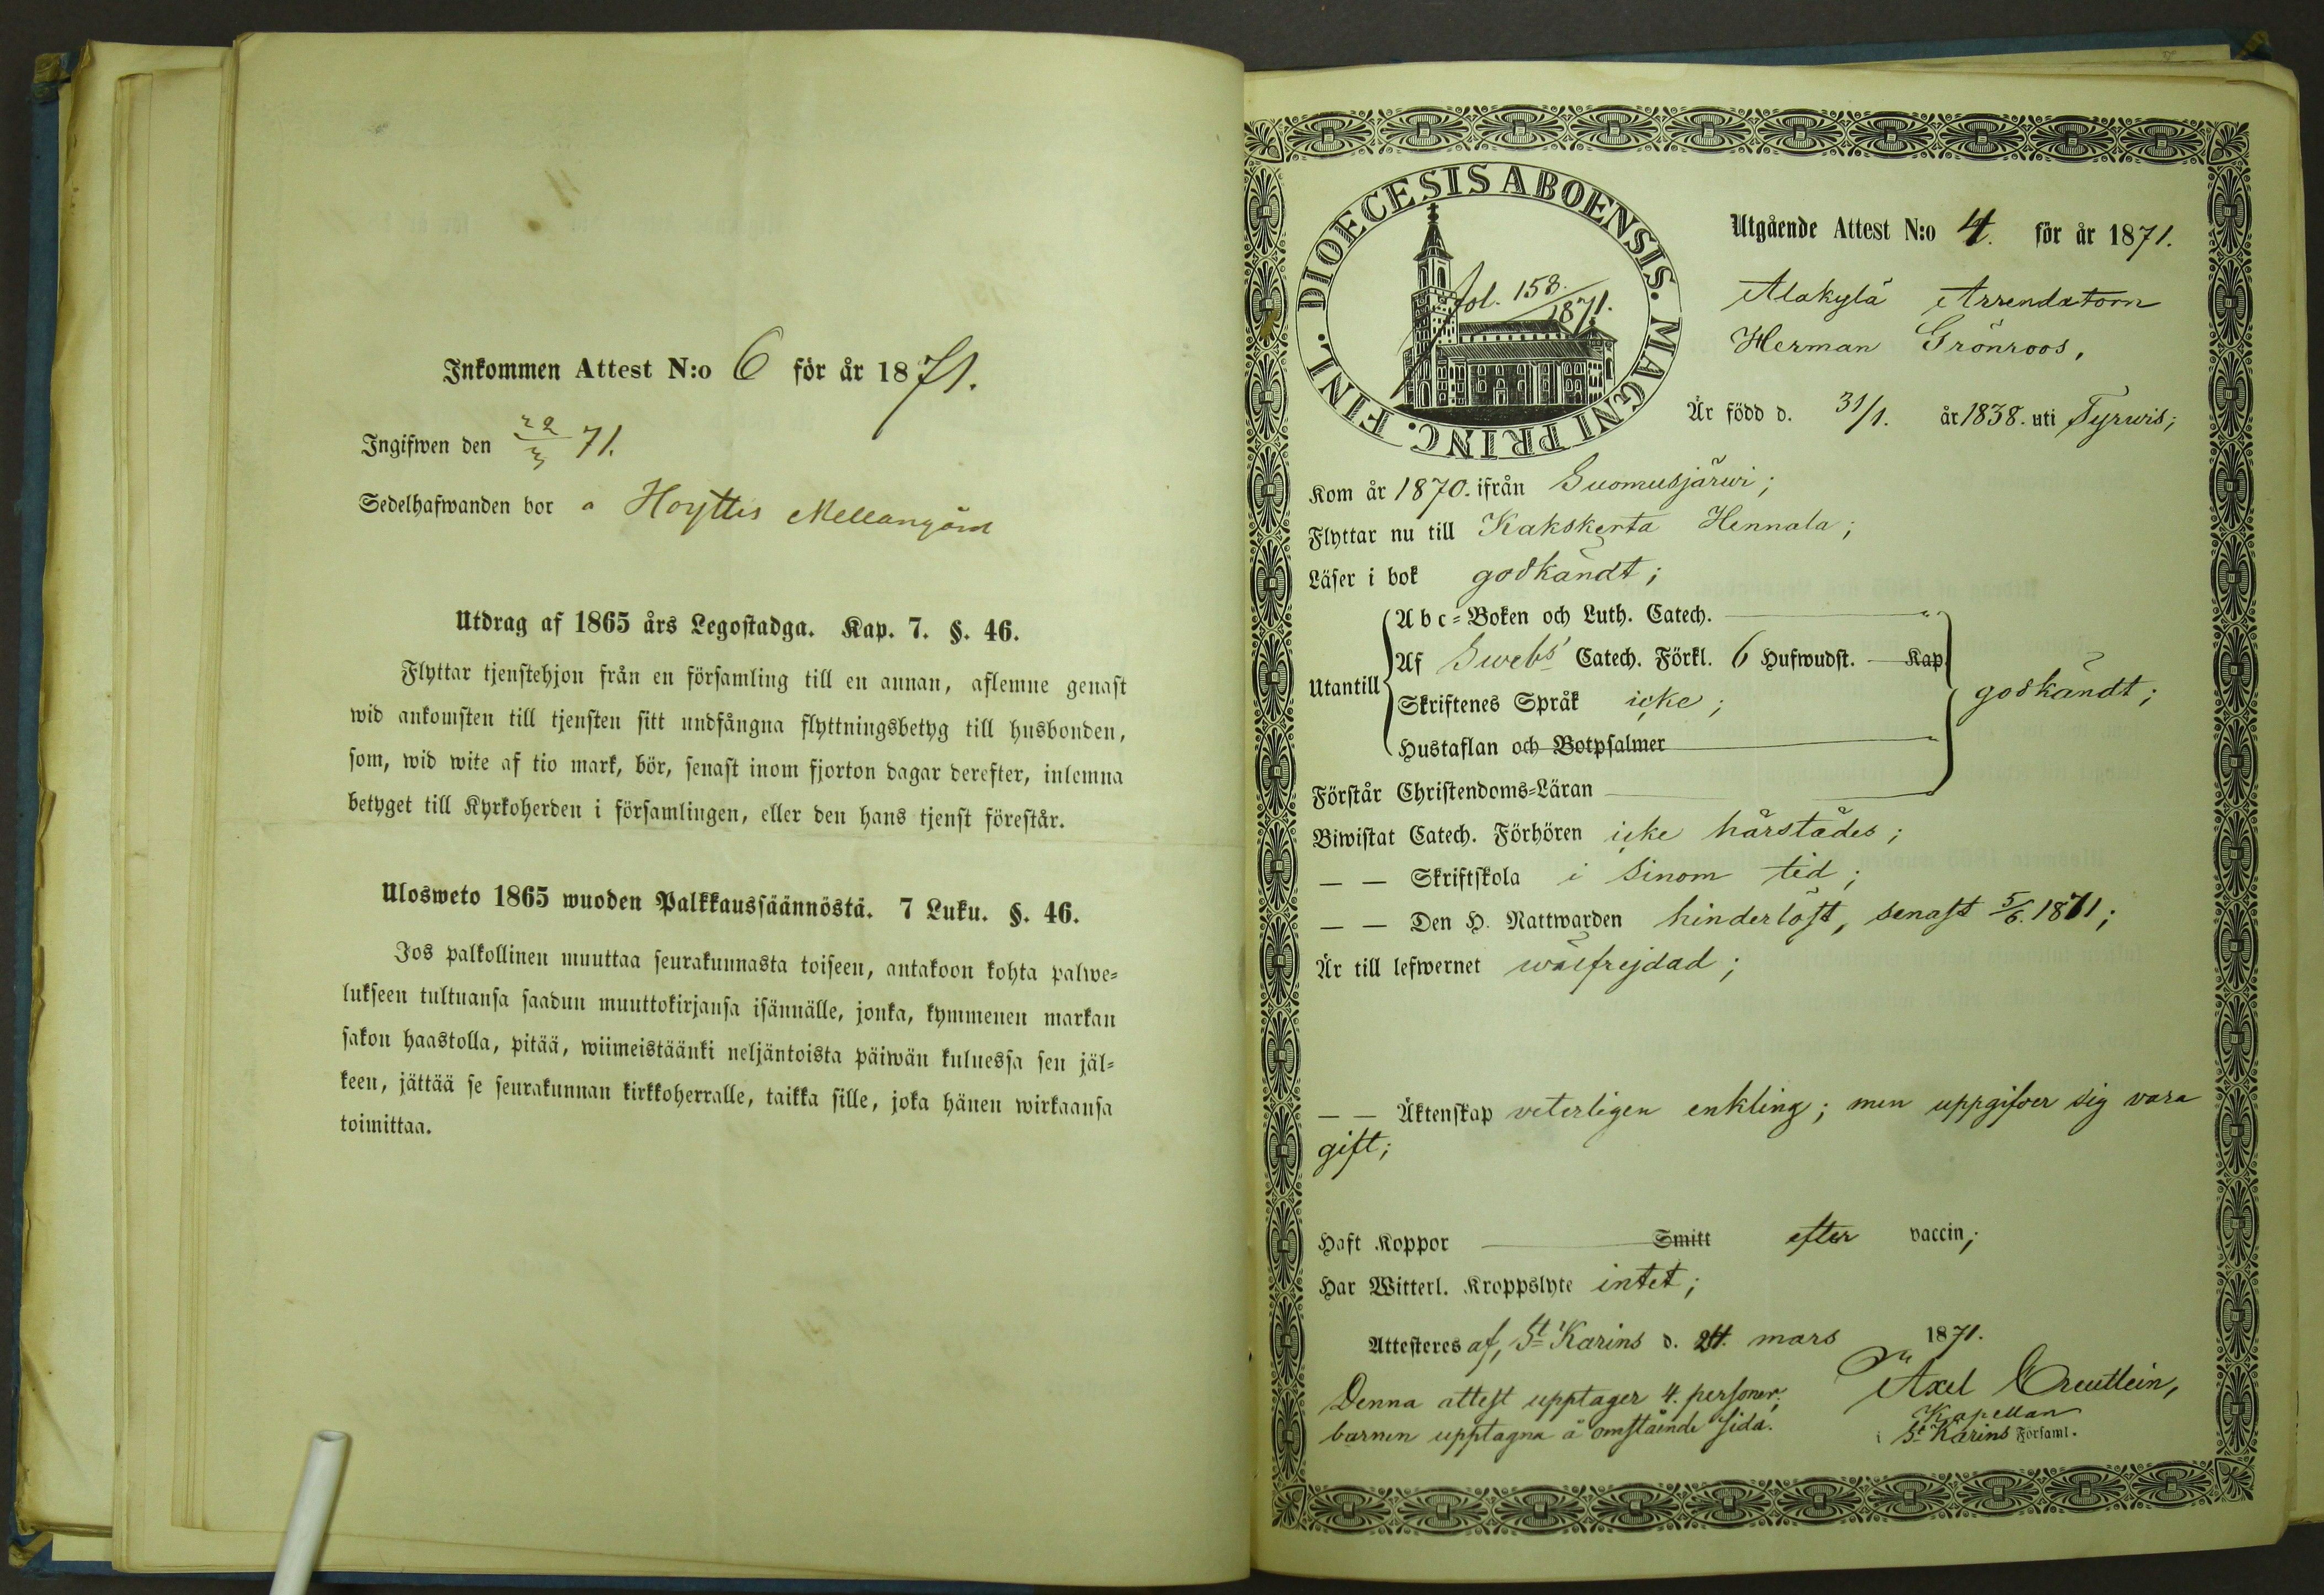 Inkommen Attest N:o 6 för år 1871.
Ingifwen den 22/3 71.
Sedelhafwanden bor a Hoyttis Mellangård
Utdrag af 1865 års Legostadga. Kap. 7. §. 46.
Flyttar tjenstehjon från en församling till en annan, aflemne genast
wid ankomsten till tjensten sitt undfångna flyttningsbetyg till husbonden,
som, wid wite af tio mark, bör, senast inom fjorton dagar derefter, inlemna
betyget till Kyrkoherden i församlingen, eller den hans tjenst förestår.
Ulosweto 1865 wuoden Palkkaussäännöstä. 7 Luku. §. 46.
Jos palkollinen muuttaa seurakunnasta toiseen, antakoon kohta palwe=
lukseen tultuansa saadun muuttokirjansa isännälle, jonka, kymmenen markan
sakon haastolla, pitää, wiimeistäänki neljäntoista päiwän kuluessa sen jäl=
keen, jättää se seurakunnan kirkkoherralle, taikka sille, joka hänen wirkaansa
toimittaa.
DIOECESIS ABOENSIS. MAGNI PRINC. FINL.
fol. 158.
1871.
Utgående Attest N:o 4. för år 1871.
Alakylä Arrendatorn
Herman Grönroos,
Är född d. 31/1. år 1838. uti Tyrwis;
Kom år 1870. ifrån Suomusjärwi;
Flyttar nu till Kakskerta Hennala;
Läser i bok godkändt;
Utantill
Abc=Boken och Luth. Catech.
Af Swebs' Catech. Förkl. 6 Hufwudst. Kap.
Skriftenes Språk icke;
Hustaflan och Botpsalmer
godkändt;
Förstår Christendoms=Läran
Biwistat Catech. Förhören icke härstädes;
— — Skriftskola i sinom tid;
— — Den H. Nattwarden hinderlöst, senast 5/6. 1871;
Är till lefwernet wälfrejdad;
— — Äktenskap veterligen enkling; men uppgifver sig vara
gift;
Haft Koppor Smitt efter vaccin;
Har Witterl. Kroppslyte intet;
Attesteres af, St Karins d. 21. mars 1871.
Axel Creutlein,
Kapellan
i St Karins Församl.
Denna attest upptager 4. personer;
barnen upptagna å omstående sida.